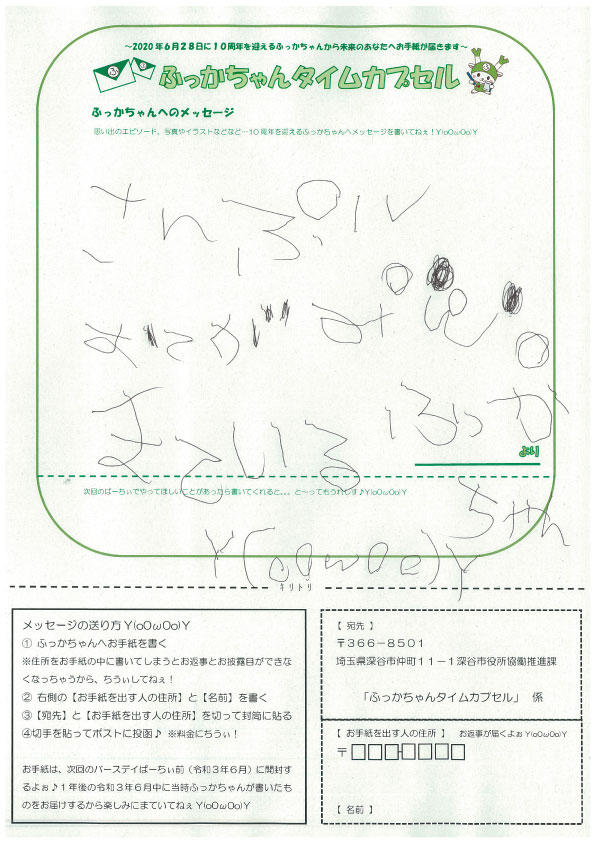 ～2020年6月28日に10周年を迎えるふっかちゃんから未来のあなたへお手紙が届きます～
ふっかちゃんタイムカプセル
ふっかちゃんへのメッセージ
思い出のエピソード、写真やイラストなどなど…10周年を迎えるふっかちゃんへメッセージを書いてねぇ！Y(oOωOo)Y
さんぷル
おてがみ
まている ふっか
より
次回のばーちぃでやってほしいことがあったら書いてくれると。。。と～ってもうれしす♪Y(oOωOo)Y
ちゃん
Y(oOωOo)Y
キリトリ
メッセージの送り方 Y(oOωOo)Y
① ふっかちゃんへお手紙を書く
※住所をお手紙の中に書いてしまうとお返事とお披露目ができな
くなっちゃうから、ちうぃしてねぇ！
② 右側の【お手紙を出す人の住所】と【名前】を書く
③【宛先】と【お手紙を出す人の住所】を切って封筒に貼る
④切手を貼ってポストに投函♪ ※料金にちうぃ！
お手紙は、次回のバースデイぱーちぃ前（令和3年6月）に開封す
るよぉ♪1年後の令和3年6月中に当時ふっかちゃんが書いたも
のをお届けするから楽しみにまていてねぇ Y(oOωOo)Y
【 宛先 】
〒366－8501
埼玉県深谷市仲町11－1深谷市役所協働推進課
「ふっかちゃんタイムカプセル」 係
【 お手紙を出す人の住所 】 お返事が届くよぉ Y(oOωOo)Y
〒
【 名前 】